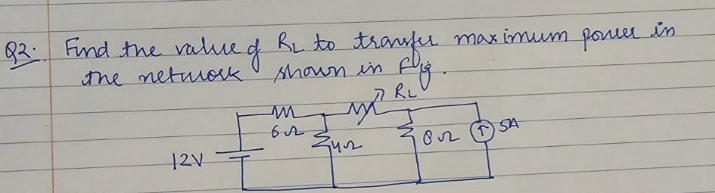 Q2. Find the value of RL to transfer maximum power in
the network shown in fig.
RL
6Ω
4Ω
8Ω
5A
12V